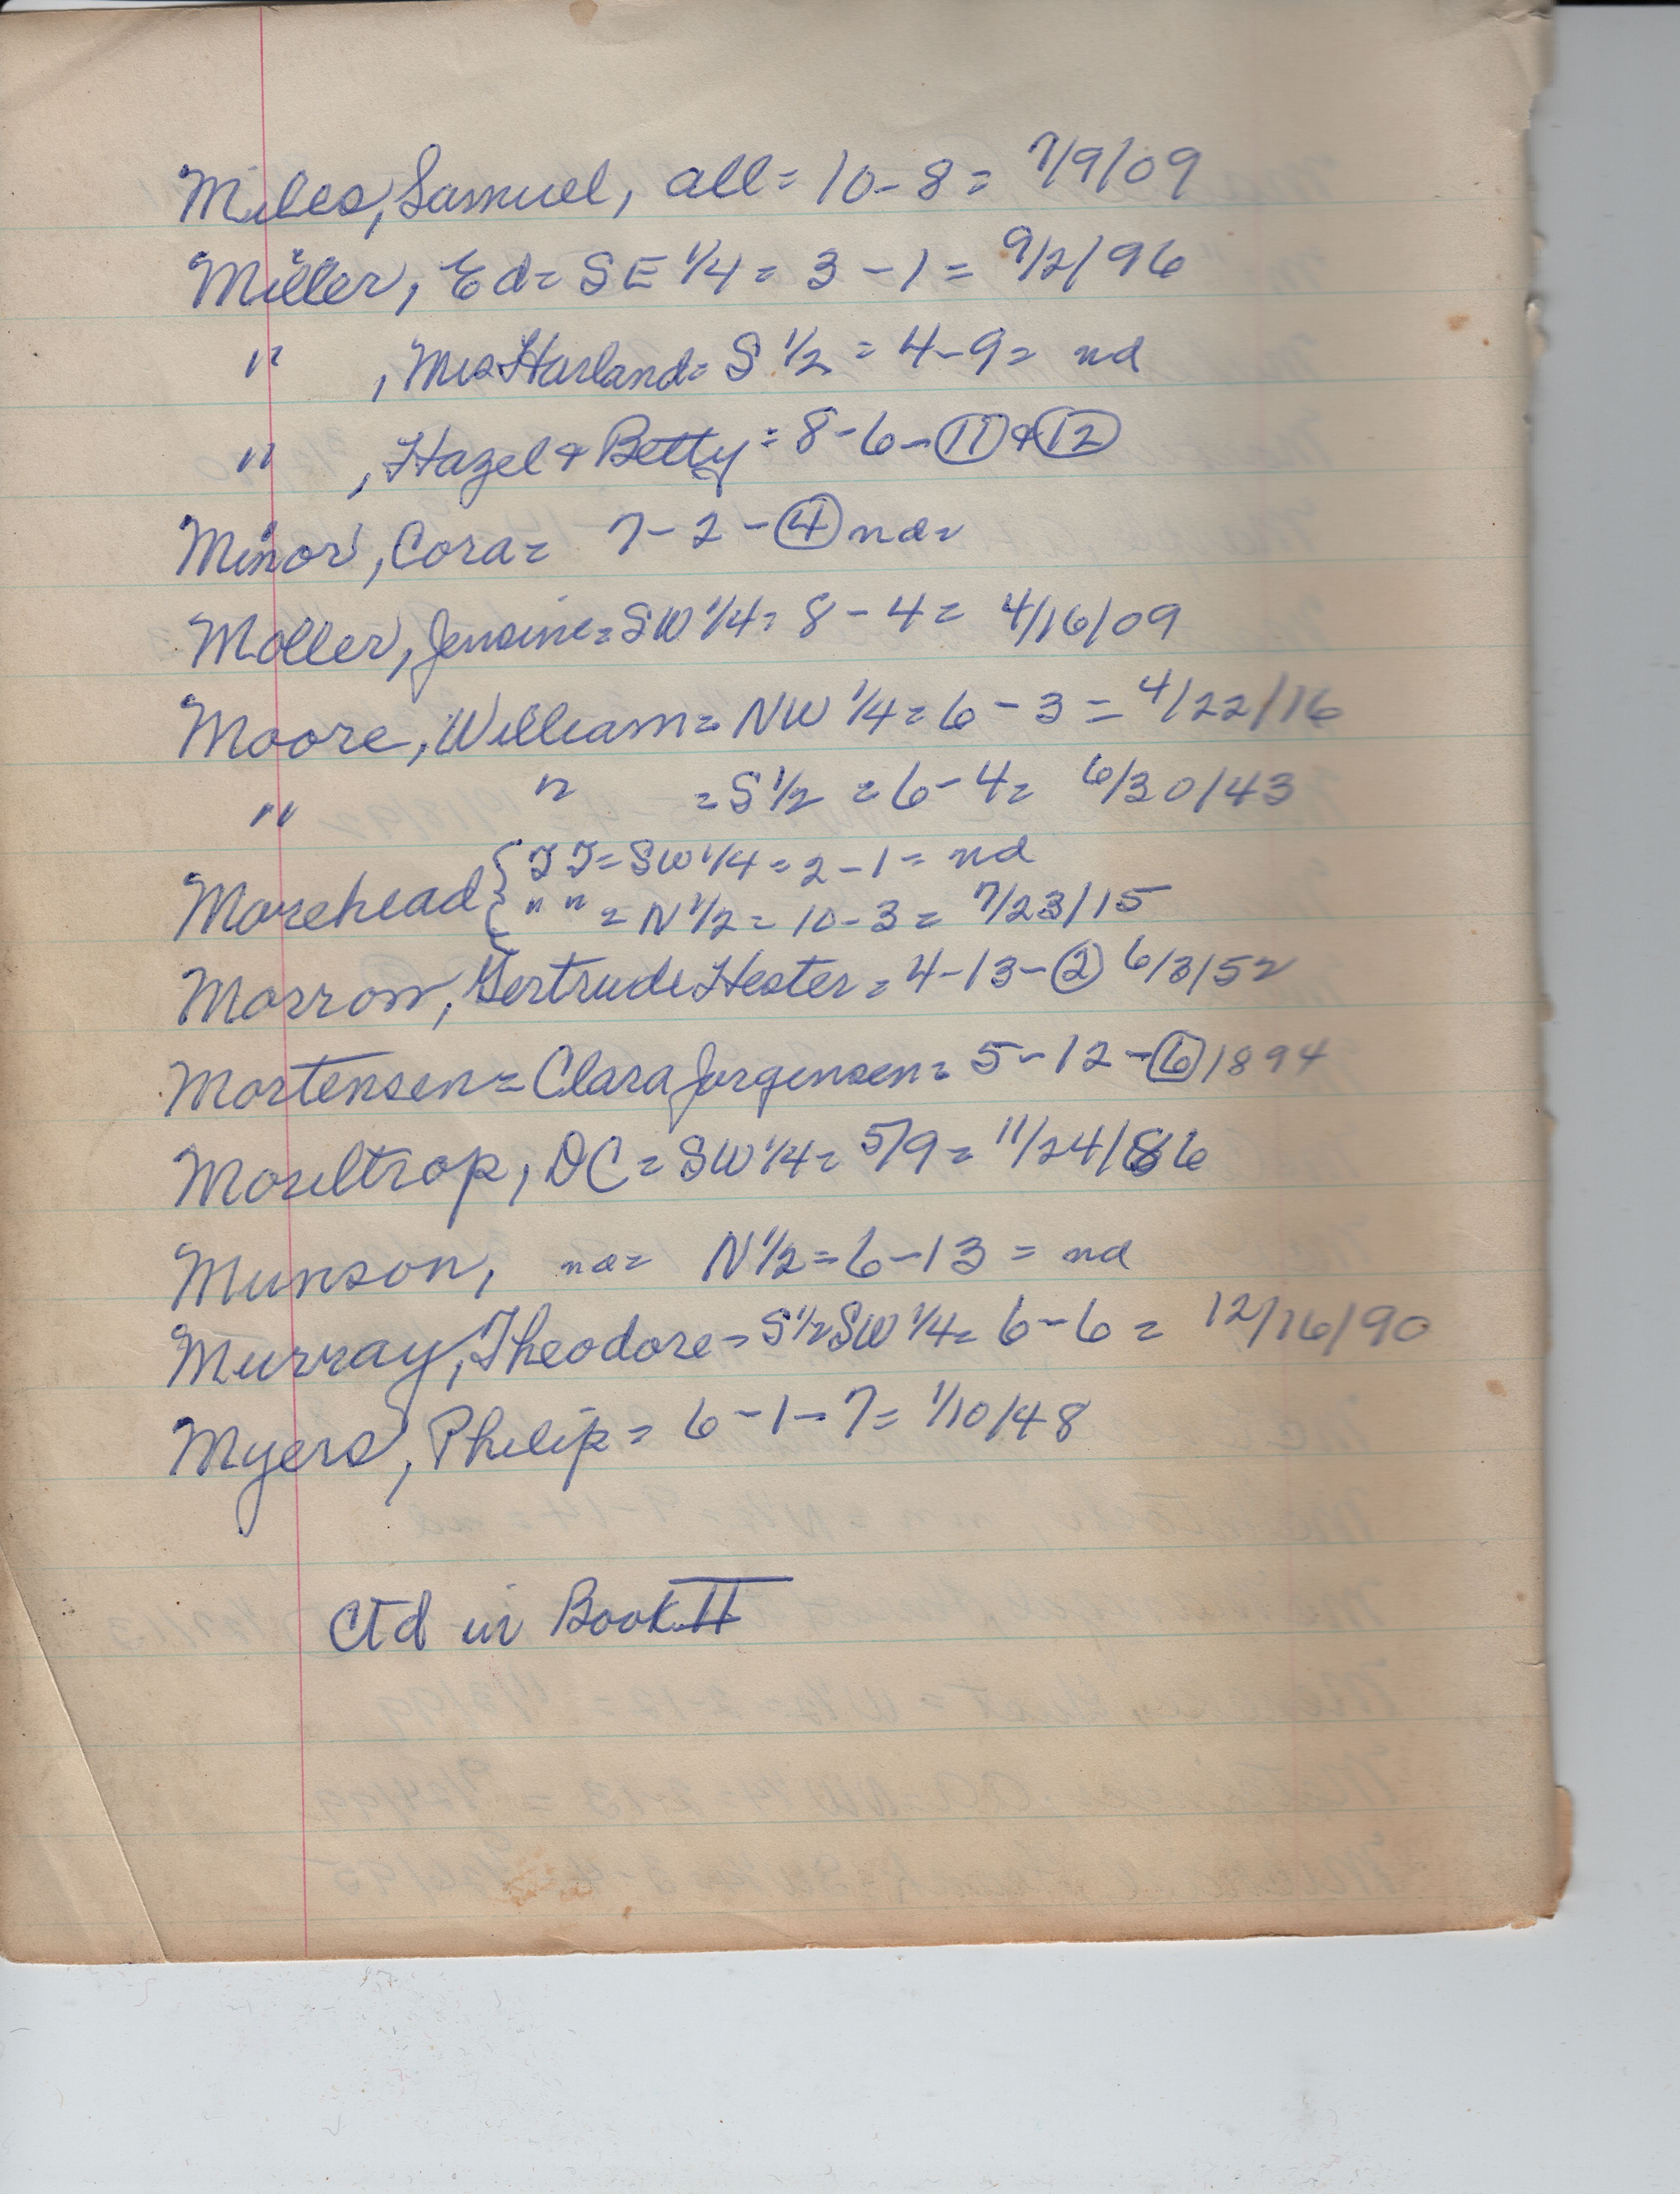 Miles, Samuel, all = 10-8 = 7/9/09
Miller, Ed = SE 1/4 = 3-1 = 9/2/96
" , Mrs Harland = S 1/2 = 4-9 = nd
" , Hazel & Betty = 8-6-⑪ & ⑫
Minor, Cora = 7-2-④ nd =
Moller, Jensine = SW 1/4 = 8-4 = 4/16/09
Moore, William = NW 1/4 = 6-3 = 4/22/16
" " = S 1/2 = 6-4 = 6/30/43
Morehead { JJ = SW 1/4 = 2-1 = nd
" " = N 1/2 = 10-3 = 7/23/15
Morrow, Gertrude Hester = 4-13-② 6/3/52
Mortensen = Clara Jorgensen = 5-12-⑥ 1894
Moreltrop, DC = SW 1/4 = 5/9 = 11/24/86
Munson, na = N 1/2 = 6-13 = nd
Murray, Theodore - S 1/2 SW 1/4 = 6-6 = 12/16/90
Myers, Philip = 6-1-7 = 1/10/48
Ctd in Book II